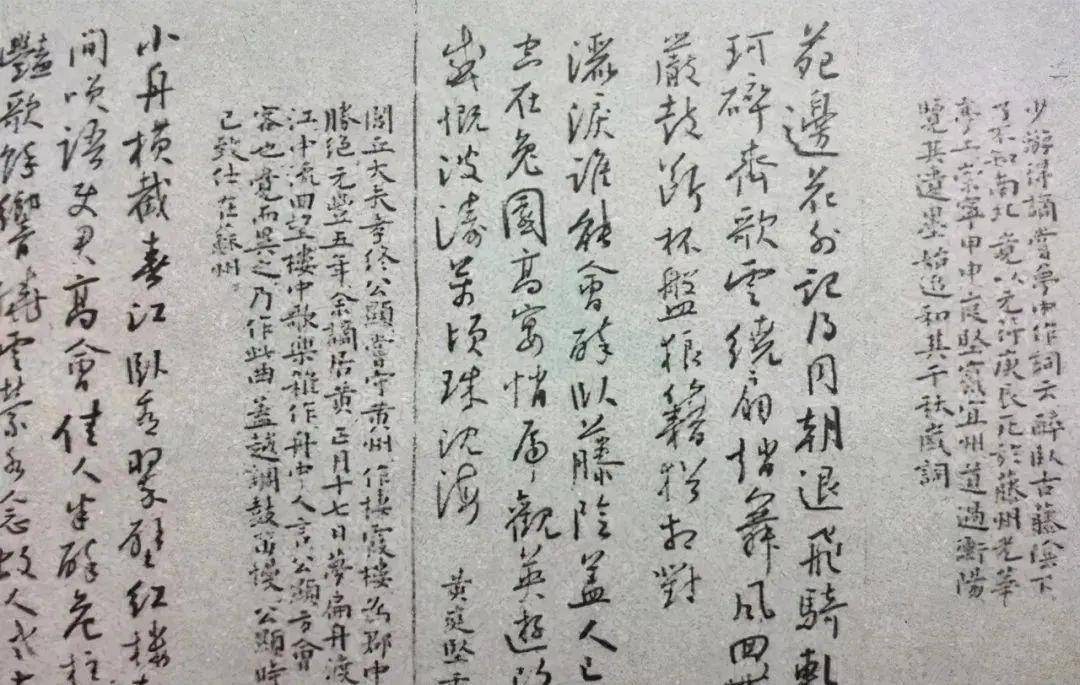 少游得謫嘗夢中作詞云醉臥古藤陰下
了不知南北竟以元符庚辰死於藤州光華
亭上崇寧甲申庭堅竄宜州道過衡陽
覽其遺墨始追和其千秋歲詞
苑邊花外記得同朝退飛騎軋
珂碎齊歌云繞扇趙舞風回
嚴鼓斷杯盤狼籍猶相對
灑淚誰能會醉臥藤陰蓋人已
空在兔園高宴悄虎觀英遊改
感慨波濤萬頃珠沈海
黃庭堅千
閭丘大夫孝終公顯嘗守黃州作棲霞樓為郡中
勝絕元豐五年余謫居黃正月十七日夢扁舟渡
江中流回望樓中歌樂雜作舟中人言公顯方會
客也覺而異之乃作此曲蓋越調鼓笛慢公顯時
已致仕在蘇州
小舟橫截春江臥看翠壁紅樓
間笑語使君高會佳人半醉危柱
豔歌餘響繞雲縈水念故人老